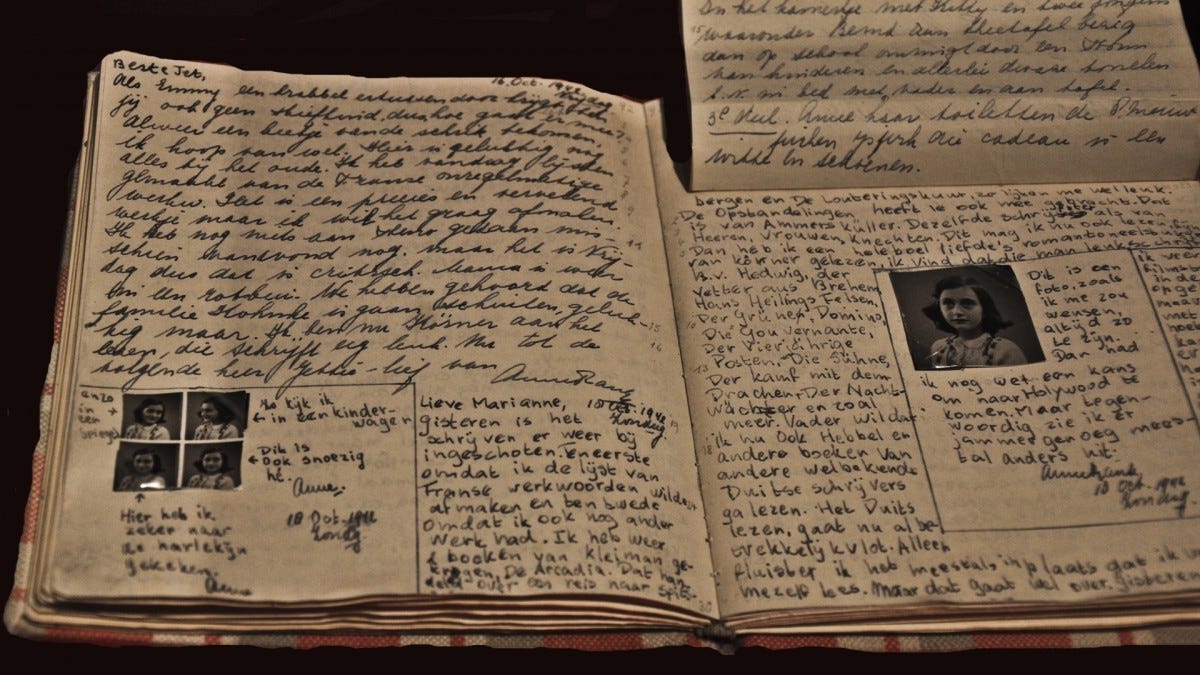 Beste Jet, 16. Oct. 1942
Als Emmy een krabbel ertussendoor krijgt, heb
jij ook geen stiefkind, dus hoe gaat
Alweer een beetje van de schrik bekomen.
ik hoop van wel. Hier is gelukkig nog
alles bij het oude. Ik heb vandaag lijsten
gemaakt van de Franse onregelmatige
werkw. Het is een precies en vervelend
werkje maar ik wil het graag afmaken.
Ik heb nog niets aan steno gedaan mis-
schien vanavond nog, maar het is Vrij-
dag dus dat is critisch. Mama is weer
in een rotbui. We hebben gehoord dat de
familie is gaan schuilen, geluk-
kig maar. Ik ben nu Körner aan het
lezen, die schrijft erg leuk. Nu tot de
volgende keer Jettie-lief van
Anne Frank
anzo
in
een
spiegel
Zo kijk ik
in een kinder-
wagen
Dit is
ook snoezig
hè.
Anne.
Hier heb ik
zeker naar
de harlekijn
gekeken.
Anne
18 Oct. 1942
Zondag
Lieve Marianne, 18 Oct. 1942
Zondag.
gisteren is het
schrijven er weer bij
ingeschoten. Eneerste
omdat ik de lijst van
Franse werkwoorden wilde
afmaken en ten twede
omdat ik ook nog ander
werk had. Ik heb weer
2 boeken van Kleiman ge-
kregen. De Arcadia. Dat han-
delt over een reis naar Spits-
In het kamertje met Kitty en twee jongens
waaronder Bernd aan theetafel bezig
dan op school omringd door een
van kinderen en allerlei dwaze
b.v. in bed met vader en aan tafel.
3e Veel. Anne haar toiletten de
die cadeau is een
witte en schoenen.
bergen en De Louteringskuur, zo lijken me wel leuk.
De Opstandelingen heeft ie ook mee gebracht. Dat
is van Ammers Küller. Dezelfde schrijfster als van
Heeren, Vrouwen, Knechten. Dit mag ik nu ook lezen
Dan heb ik een heleboel liefde's romantoneelstukjes
van körner gelezen, ik vind dat die man leuk schrijft
B.v. Hedwig, der
Vetter aus Bremen
Hans Heilings Felsen,
Der Grüne Domino,
Die Gouvernante,
Der Vierjährige
Posten, Die Sühne,
Der kampf mit dem
Drachen, Der Nacht-
wächter en zoal
meer. Vader wil dat
ik nu ook Hebbel en
andere boeken van
andere welbekende
Duitse schrijvers
ga lezen. Het Duits
lezen, gaat nu al be-
trekkelijk vlot. Alleen
fluister ik het meestal inplaats dat ik
mezelf lees. Maar dat gaat wel over. gisteren
Dit is een
foto, zoals
ik me zou
wensen,
altijd zo
te zijn.
Dan had
ik nog wel een kans
om naar Holywood te
komen. Maar tegen-
woordig zie ik er
jammer genoeg mees-
tal anders uit.
Anne Frank
18 Oct. 1942
Zondag